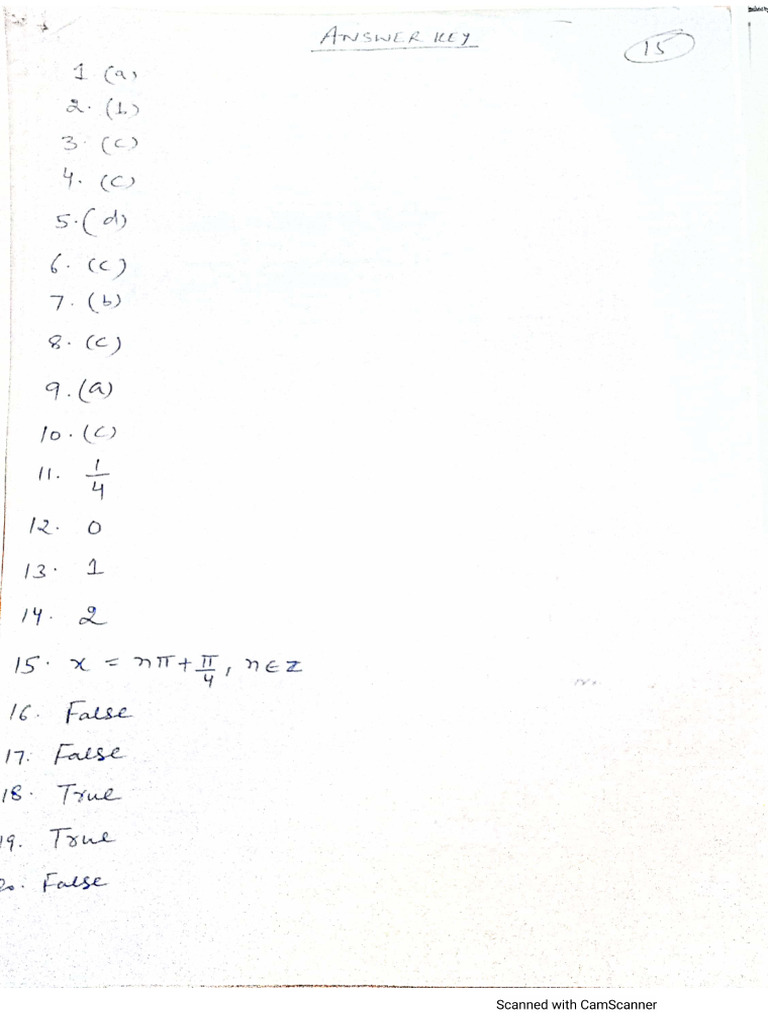 ANSWER KEY
15
1 (a)
2. (b)
3. (c)
4. (c)
5. (d)
6. (c)
7. (b)
8. (c)
9. (a)
10. (c)
11. 1/4
12. 0
13. 1
14. 2
15. x = nπ + π/4, n ∈ Z
16. False
17. False
18. True
19. True
20. False
Scanned with CamScanner